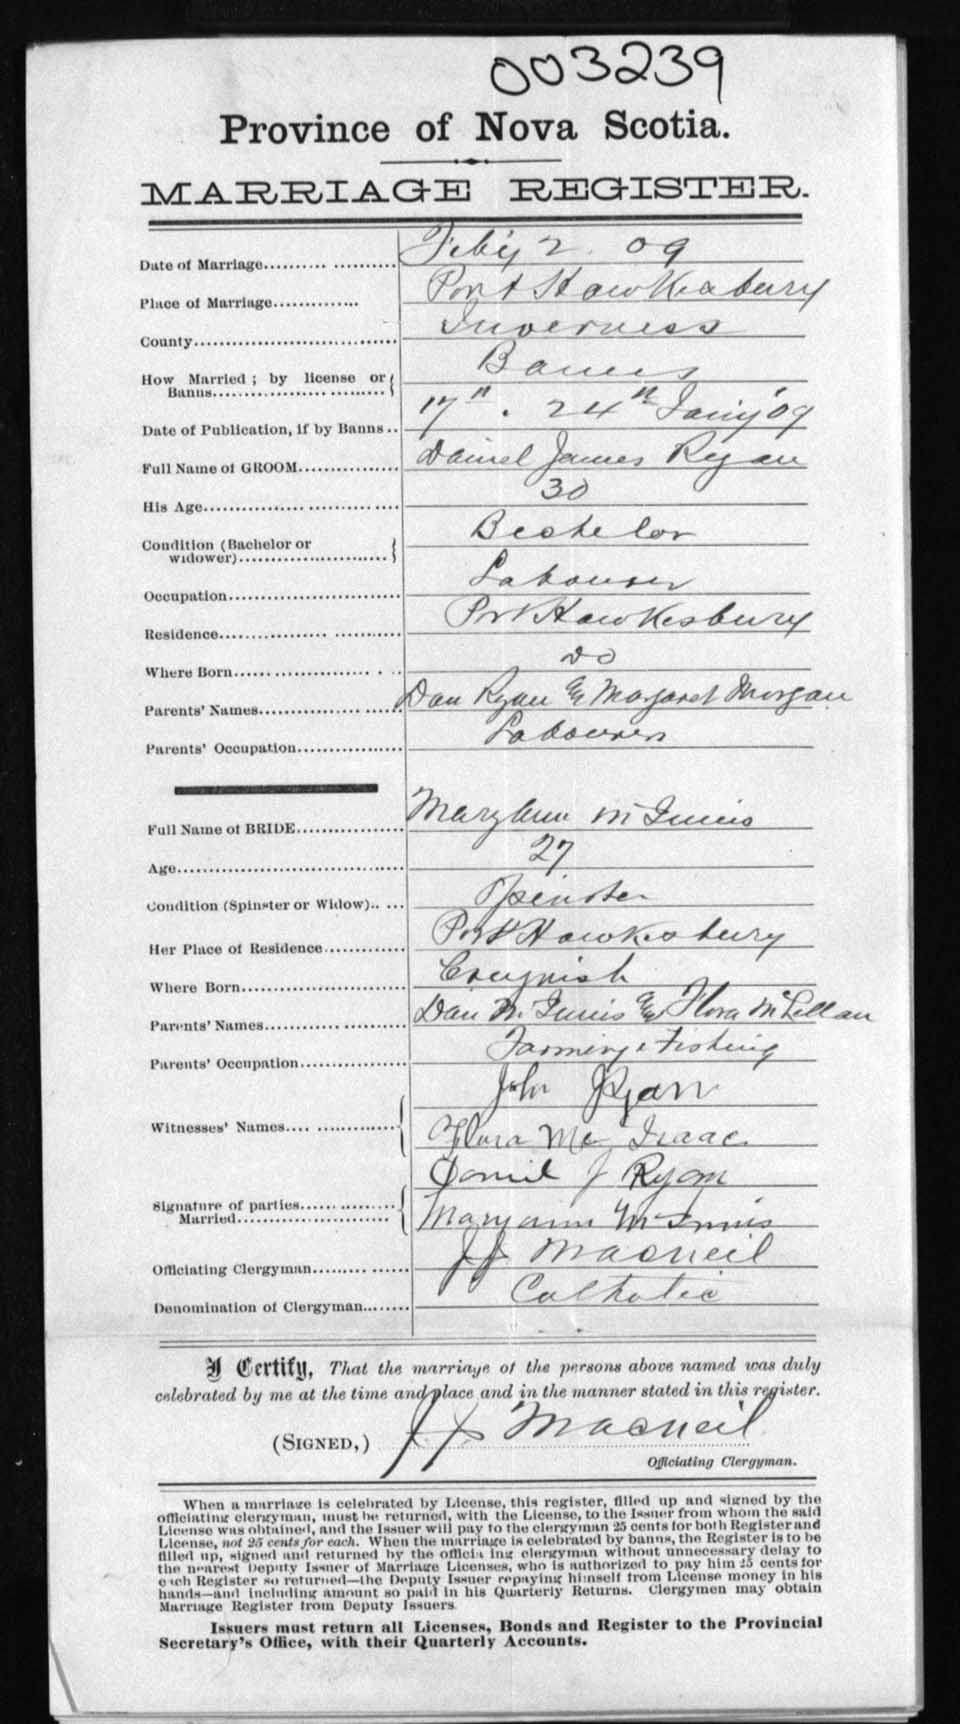 003239
Province of Nova Scotia.
MARRIAGE REGISTER.
Date of Marriage.................... Feb'y 2. 09
Place of Marriage............. Port Hawkesbury
County................................ Inverness
How Married ; by license or
Banns.......................... Banns
Date of Publication, if by Banns .. 17th . 24th Jan'y '09
Full Name of GROOM................ Daniel James Ryan
His Age.............................. 30
Condition (Bachelor or
widower)........................ Bachelor
Occupation........................... Labourer
Residence............................ Port Hawkesbury
Where Born........................ do
Parents' Names..................... Dan Ryan & Margaret Morgan
Parents' Occupation................ Labourer
Full Name of BRIDE................ Mary Ann McInnis
Age.................................... 27
Condition (Spinster or Widow).. ... Spinster
Her Place of Residence............. Port Hawkesbury
Where Born......................... Creignish
Parents' Names..................... Dan McInnis & Flora McLellan
Parents' Occupation................ Farming & Fishing
Witnesses' Names.... .............. John Ryan
Flora Mc Isaac
Signature of parties................
Married........................ Daniel J Ryan
Mary ann McInnis
Officiating Clergyman............... JJ Macneil
Denomination of Clergyman........ Catholic
I Certify, That the marriage of the persons above named was duly
celebrated by me at the time and place and in the manner stated in this register.
(SIGNED,) JJ Macneil
Officiating Clergyman.
When a marriage is celebrated by License, this register, filled up and signed by the
officiating clergyman, must be returned, with the License, to the Issuer from whom the said
License was obtained, and the Issuer will pay to the clergyman 25 cents for both Register and
License, not 25 cents for each. When the marriage is celebrated by banns, the Register is to be
filled up, signed and returned by the officia ing clergyman without unnecessary delay to
the nearest Deputy Issuer of Marriage Licenses, who is authorized to pay him 25 cents for
each Register so returned—the Deputy Issuer repaying himself from License money in his
hands—and including amount so paid in his Quarterly Returns. Clergymen may obtain
Marriage Register from Deputy Issuers.
Issuers must return all Licenses, Bonds and Register to the Provincial
Secretary's Office, with their Quarterly Accounts.